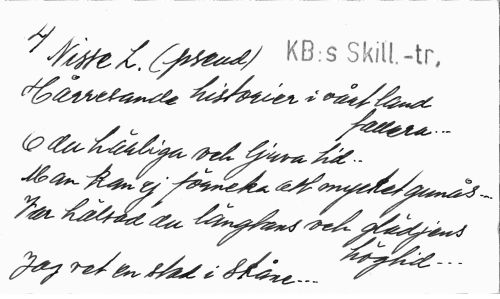 4/
Nisse L. (pseud) KB:s Skill.-tr.
Hårresande historier i vårt land
fallera...
O du härliga och ljuva tid..
Man kan ej förneka att mycket gunås...
Var hälsad du längtans och glädjens
högtid...
Jag vet en stad i Skåne...